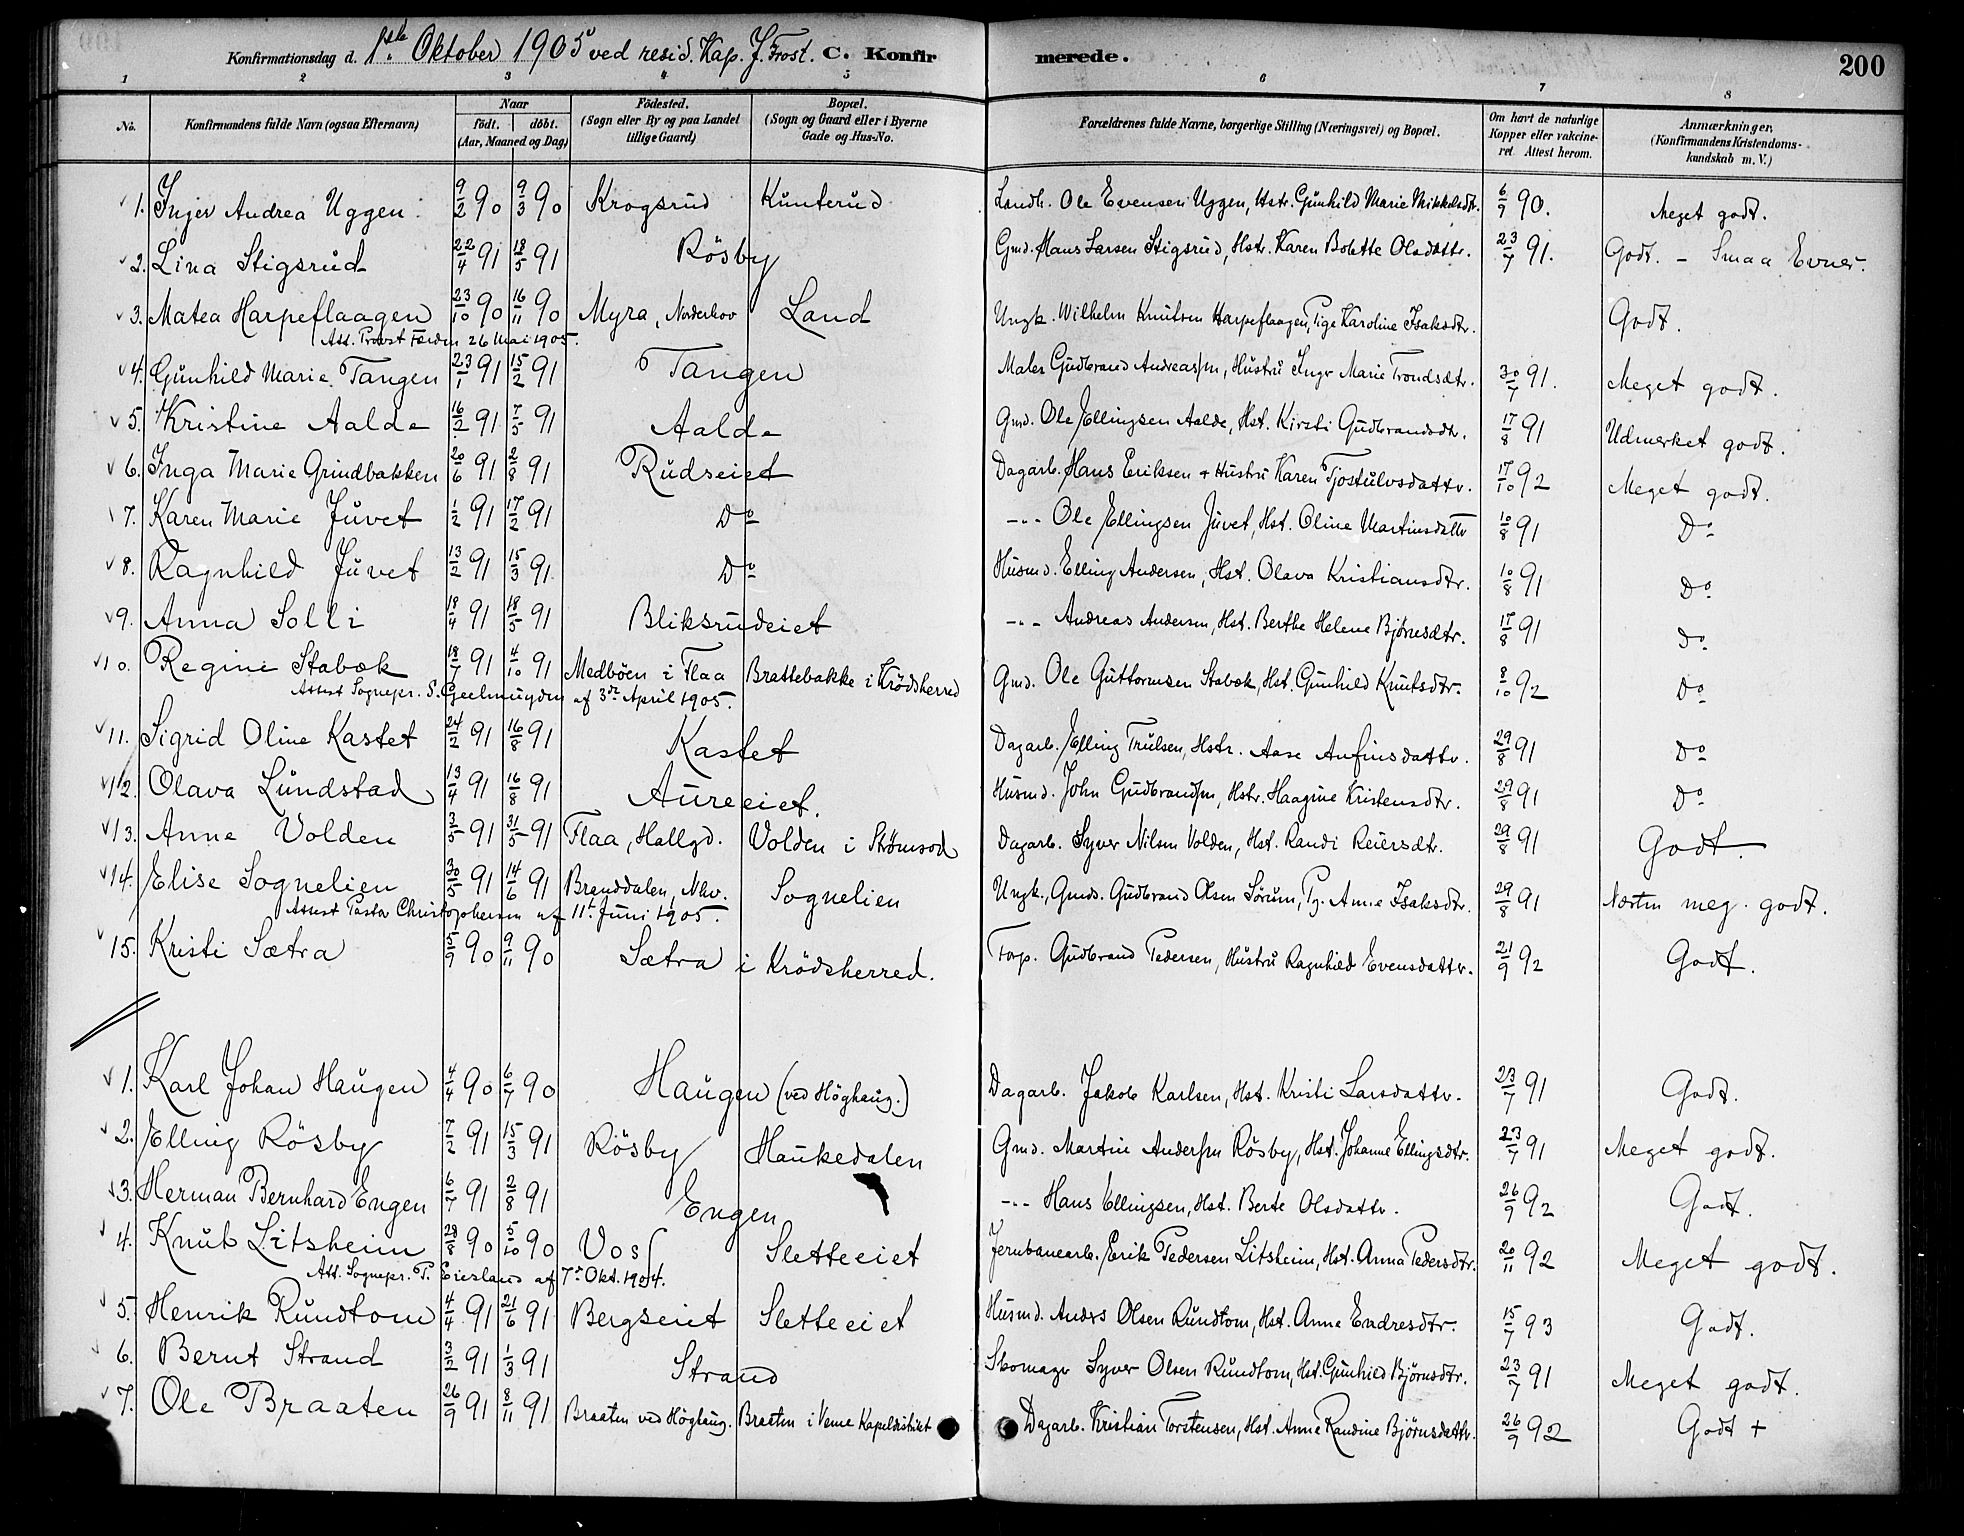 Konfirmationsdag d. 1ste Oktober 1905 ved resid. Kap. J. Frost. C. Konfirmerede. 200
1 2 3 4 5 6 7 8
No. Konfirmandens fulde Navn (ogsaa Efternavn) Naar födt. döbt. (Aar, Maaned og Dag) Födested. (Sogn eller By og paa Landet tillige Gaard) Bopæl. (Sogn og Gaard eller i Byerne Gade og Hus-No. Forældrenes fulde Navne, borgerlige Stilling (Næringsvei) og Bopæl. Om havt de naturlige Kopper eller vakcineret Attest herom. Anmærkninger. (Konfirmandens Kristendomskundskab m. V.)
1. Inger Andrea Uggen 9/2 90 9/3 90 Krogsrud Kunterud Landh. Ole Evensen Uggen, Hstr. Gunhild Marie Mikkelsdtr. 6/9 90. Meget godt.
2. Lina Stigsrud 22/4 91 18/5 91 Rösby Gmd. Hans Larsen Stigsrud, Hstr. Karen Bolette Olsdattr. 23/7 91. Godt. - Smaa Evner.
3. Matea Harpeflaagen 23/10 90 16/11 90 Myra, Norderhov Land Ungk. Wilhelm Knutsen Harpeflaagen, Pige Karoline Isaksdtr. Godt.
Att. Provst Færden 26 Mai 1905.
4. Gunhild Marie Tangen 23/1 91 15/2 91 Tangen Maler Gudbrand Andreassen, Hustru Inger Marie Trondsdtr. 30/7 91. Meget godt.
5. Kristine Aalde 16/2 91 7/5 91 Aalde Gmd. Ole Ellingsen Aalde, Hst. Kirsti Gudbrandsdtr. 17/8 91 Udmerket godt.
6. Inga Marie Grindbakken 20/6 91 2/8 91 Rudseiet Dagarb. Hans Eriksen + Hustru Karen Tjostulvsdattr. 17/10 92 Meget godt.
7. Karen Marie Juvet 1/2 91 17/2 91 Do -"- Ole Ellingsen Juvet, Hst. Oline Martinsdattr 10/8 91 Do
8. Ragnhild Juvet 13/2 91 15/3 91 Do Husmd. Elling Andersen, Hst. Olava Kristiansdtr. 10/8 91 Do
9. Anna Solli 19/4 91 18/5 91 Bliksrudeiet -"- Andreas Andersen, Hst. Berthe Helene Bjørnsdtr. 17/8 91 Do
10. Regine Stabæk 18/7 91 4/10 91 Medböen i Flaa Brattebakke i Krödsherred Gmd. Ole Guttormsen Stabæk, Hst. Gunhild Knutsdtr. 8/10 92 Do
Attest Sognepr. S. Geelmuyden af 3de April 1905.
11. Sigrid Oline Kastet 24/2 91 16/8 91 Kastet Dagarb. Elling Trulsen, Hstr. Aase Anfinsdattr. 29/8 91 Do
12. Olava Lundstad 13/4 91 16/8 91 Aureeiet. Husmd. John Gudbrandsen, Hstr. Haagine Kristensdtr. 29/8 91 Do
13. Anne Volden 3/5 91 31/5 91 Flaa, Hallgd. Volden i Strømsod Dagarb. Syver Nilsen Volden, Hst. Randi Reiersdtr. 29/8 91 Godt.
14. Elise Sognelien 30/5 91 14/6 91 Brenddalen, Nhv. Sognelien Ungk., Gmds. Gudbrand Olsen Sörum, Pg. Anne Isaksdtr. 29/8 91 Næsten meg. godt.
Attest Pastor Christophersen af 11te Juni 1905.
15. Kristi Sætra 5/9 90 9/11 90 Sætra i Krödsherred. Torp. Gudbrand Pedersen, Hustru Ragnhild Evensdattr. 21/9 92 Godt.
1. Karl Johan Haugen 4/4 90 6/7 90 Haugen (ved Höghaug.) Dagarb. Jakob Karlsen, Hst. Kristi Larsdattr. 23/7 91 Godt.
2. Elling Rösby 7/2 91 15/3 91 Rösby Haukedalen Gmd. Martin Andersen Rösby, Hst. Johanne Ellingsdtr. 23/7 91 Meget godt.
3. Herman Bernhard Engen 6/7 91 2/8 91 Engen -"- Hans Ellingsen, Hst. Berte Olsdattr. 26/9 92 Godt.
4. Knut Litsheim 28/8 90 5/10 90 Voss Sletteeiet Jernbanearb. Erik Pedersen Litsheim, Hst. Anna Pedersdtr. 20/11 92 Meget godt.
Att. Sognepr. T. Eiesland af 7de Okt. 1904.
5. Henrik Rundtom 4/4 91 21/6 91 Bergseiet Sletteeiet Husmd. Anders Olsen Rundtom, Hst. Anne Endresdtr. 15/7 93 Godt.
6. Bernt Strand 3/2 91 1/3 91 Strand Skomager Syver Olsen Rundtom, Hst. Gunhild Bjørnsdtr. 23/7 91 Meget godt.
7. Ole Braaten 26/9 91 8/11 91 Braaten ved Höghaug. Braaten i Veme Kapeldistrikt Dagarb. Kristian Torstensen, Hst. Anne Randine Björnsdattr. 26/9 92 Godt +